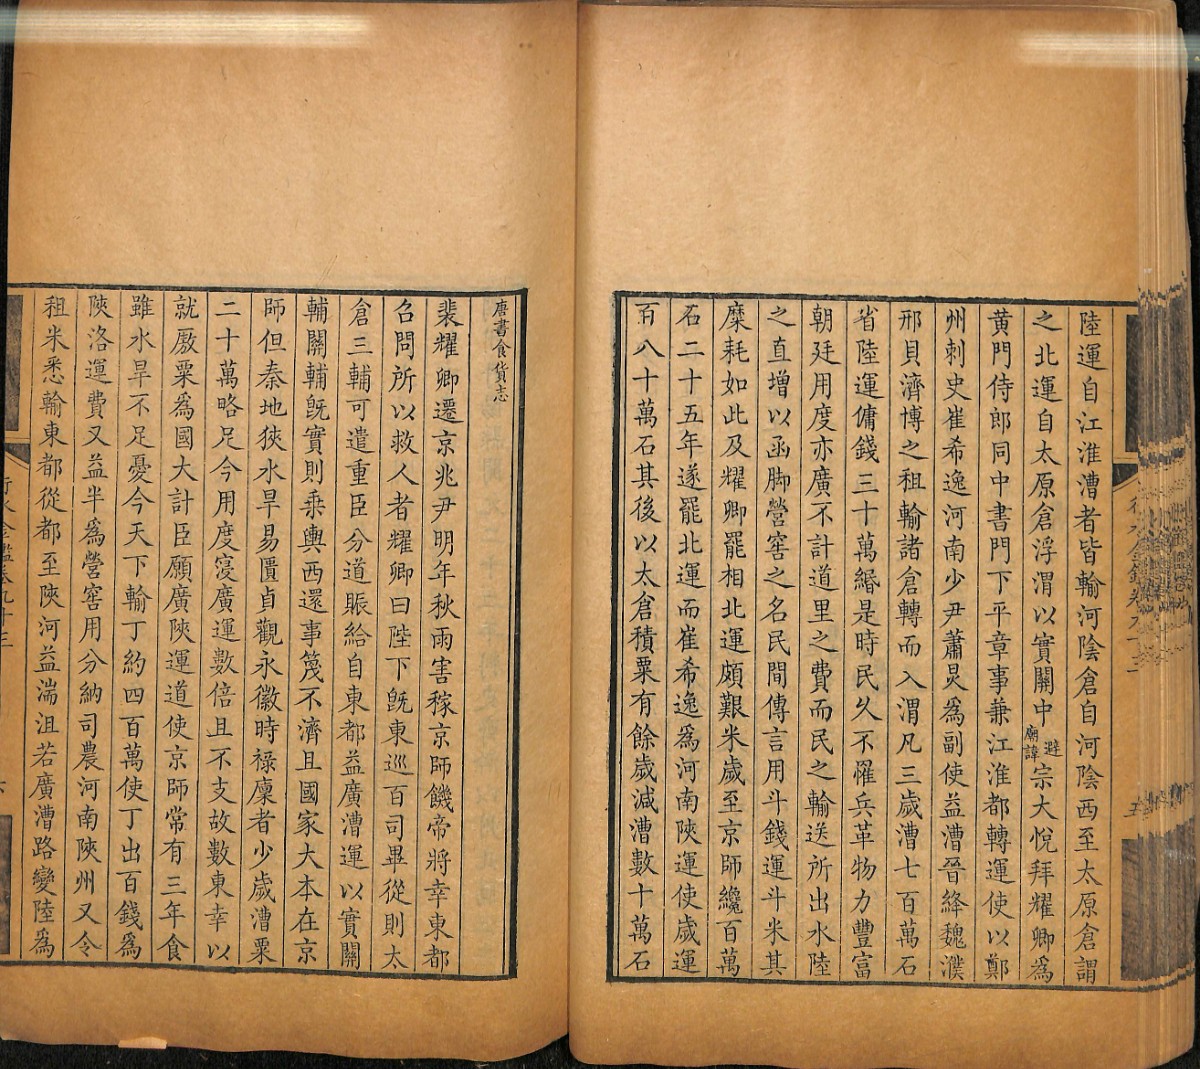 陸運自江淮漕者皆輸河陰倉自河陰西至太原倉謂
之北運自太原倉浮渭以實關中避廟諱宗大悅拜耀卿爲
黃門侍郎同中書門下平章事兼江淮都轉運使以鄭
州刺史崔希逸河南少尹蕭炅爲副使益漕晉絳魏濮
邢貝濟博之租輸諸倉轉而入渭凡三歲漕七百萬石
省陸運傭錢三十萬緡是時民久不罹兵革物力豐富
朝廷用度亦廣不計道里之費而民之輸送所出水陸
之直增以函脚營窖之名民間傳言用斗錢運斗米其
糜耗如此及耀卿罷相北運頗艱米歲至京師纔百萬
石二十五年遂罷北運而崔希逸爲河南陝運使歲運
百八十萬石其後以太倉積粟有餘歲減漕數十萬石
唐書食貨志
裴耀卿遷京兆尹明年秋雨害稼京師饑帝將幸東都
召問所以救人者耀卿曰陛下旣東巡百司畢從則太
倉三輔可遣重臣分道賑給自東都益廣漕運以實關
輔關輔旣實則乘輿西還事蔑不濟且國家大本在京
師但秦地狹水旱易匱貞觀永徽時祿廩者少歲漕粟
二十萬略足今用度寖廣運數倍且不支故數東幸以
就厫粟爲國大計臣願廣陝運道使京師常有三年食
雖水旱不足憂今天下輸丁約四百萬使丁出百錢爲
陝洛運費又益半爲營窖用分納司農河南陝州又令
租米悉輸東都從都至陝河益湍沮若廣漕路變陸爲